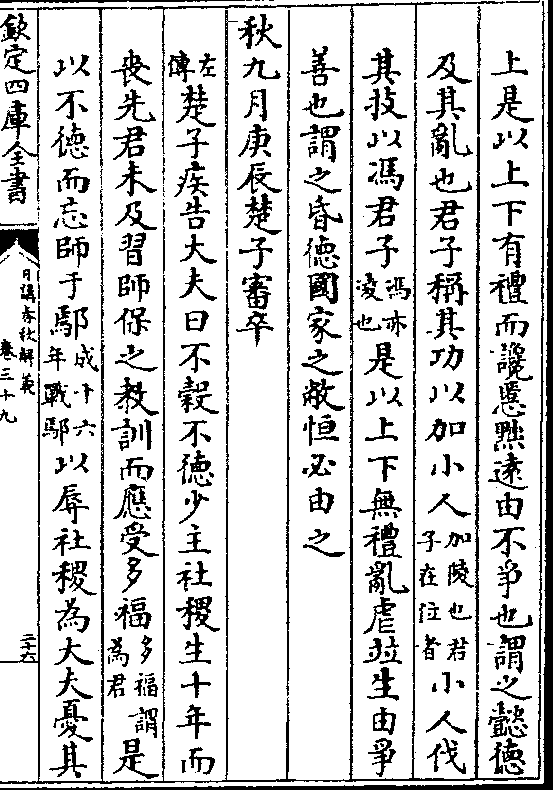 上是以上下有禮而讒慝黜遠由不爭也謂之懿德
及其亂也君子稱其功以加小人加陵也君子在位者小人伐
其技以馮君子馮亦凌也是以上下無禮亂虐並生由爭
善也謂之昏德國家之敝恒必由之
秋九月庚辰楚子審卒
左傳楚子疾告大夫曰不穀不德少主社稷生十年而
喪先君未及習師保之教訓而應受多福多福謂為君是
以不德而忘師于鄢成十六年戰鄢以辱社稷為大夫憂其
欽定四庫全書
日講春秋解義
卷三十九
三十六